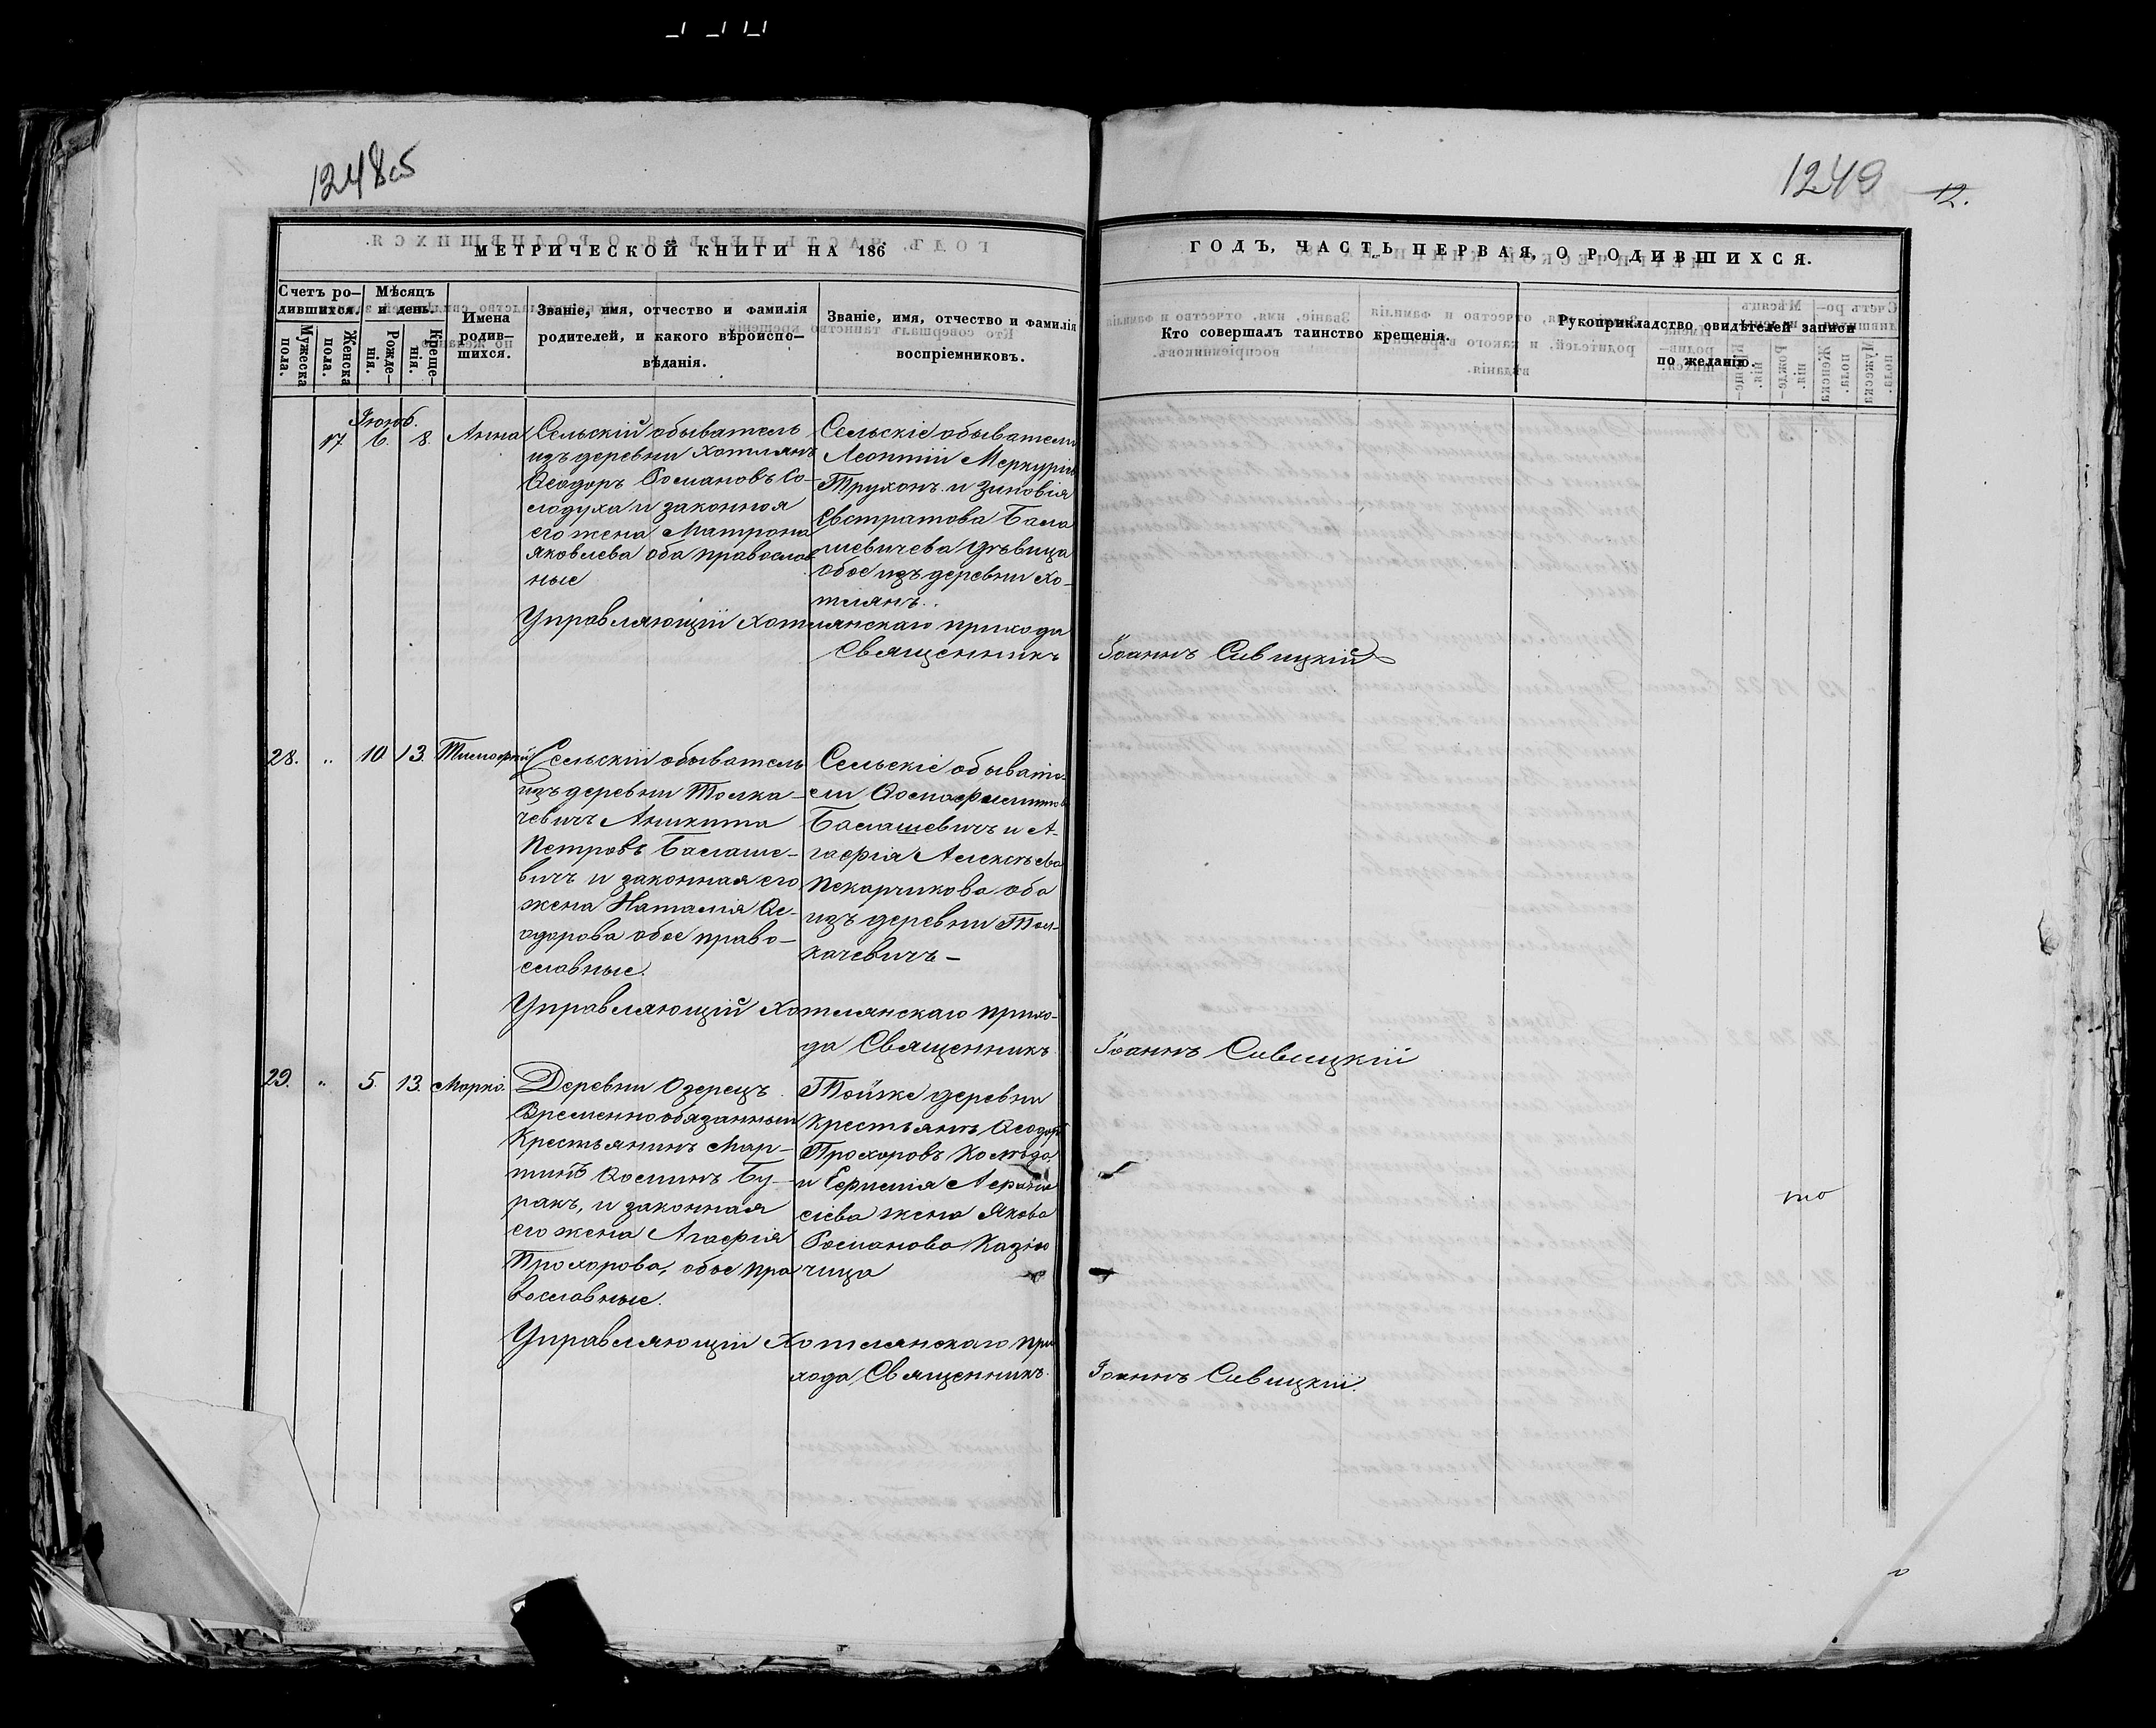 1248об
1249
12.
МЕТРИЧЕСКОЙ КНИГИ НА 186
ГОДЪ, ЧАСТЬ ПЕРВАЯ, О РОДИВШИХСЯ.
Счетъ ро-
дившихся.
Мужеска
пола.
Женска
пола.
Мѣсяцъ
и день.
Рожде-
нія.
Креще-
нія.
Имена
родив-
шихся.
Званіе, имя, отчество и фамилія
родителей, и какого вѣроиспо-
вѣданія.
Званіе, имя, отчество и фамилія
воспріемниковъ.
Кто совершалъ таинство крещенія.
Рукоприкладство свидѣтелей записи
по желанію.
Іюнь.
17 6. 8. Анна
Сельскій обыватель
изъ деревни Хотлянъ
Ѳеодоръ Романовъ Со-
лодуха и законная
его жена Матрона
Яковлева оба православ
ные
Сельскіе обыватели
Леонтій Меркуріев
Трухонъ и Зиновія
Евстратова Бала
шевичева дѣвица
обое изъ деревни Хо-
тлянъ.
Управляющій Хотлянскаго прихода
Священникъ
Іоаннъ Савицкій
28. „ 10 13. Тимофей
Сельскій обыватель
изъ деревни Толка-
чевичъ Аникита
Петровъ Балаше-
вичъ и законная его
жена Наталія Ѳе-
одорова обое право-
славные.
Сельскіе обывате-
ли
Балашевичъ и А-
гафія Алексѣева
Пекарчикова оба
изъ деревни Тол-
качевичъ -
Управляющій Хотлянскаго прихо-
да Священникъ
Іоаннъ Савицкій
29. „ 5. 13. Марко.
Деревни Озерецъ
Временнообязанный
Крестьянинъ Мар-
тинъ Косминъ Бу-
ракъ, и законная
его жена Агафія
Прохорова, обое пра
вославные.
Тойже деревни
Крестьянъ Ѳеодоръ
Прохоровъ
и Ефимія Афана
сіева жена Якова
Романова Казю
чица
Управляющій Хотлянскаго при
хода Священникъ
Іоаннъ Савицкій.